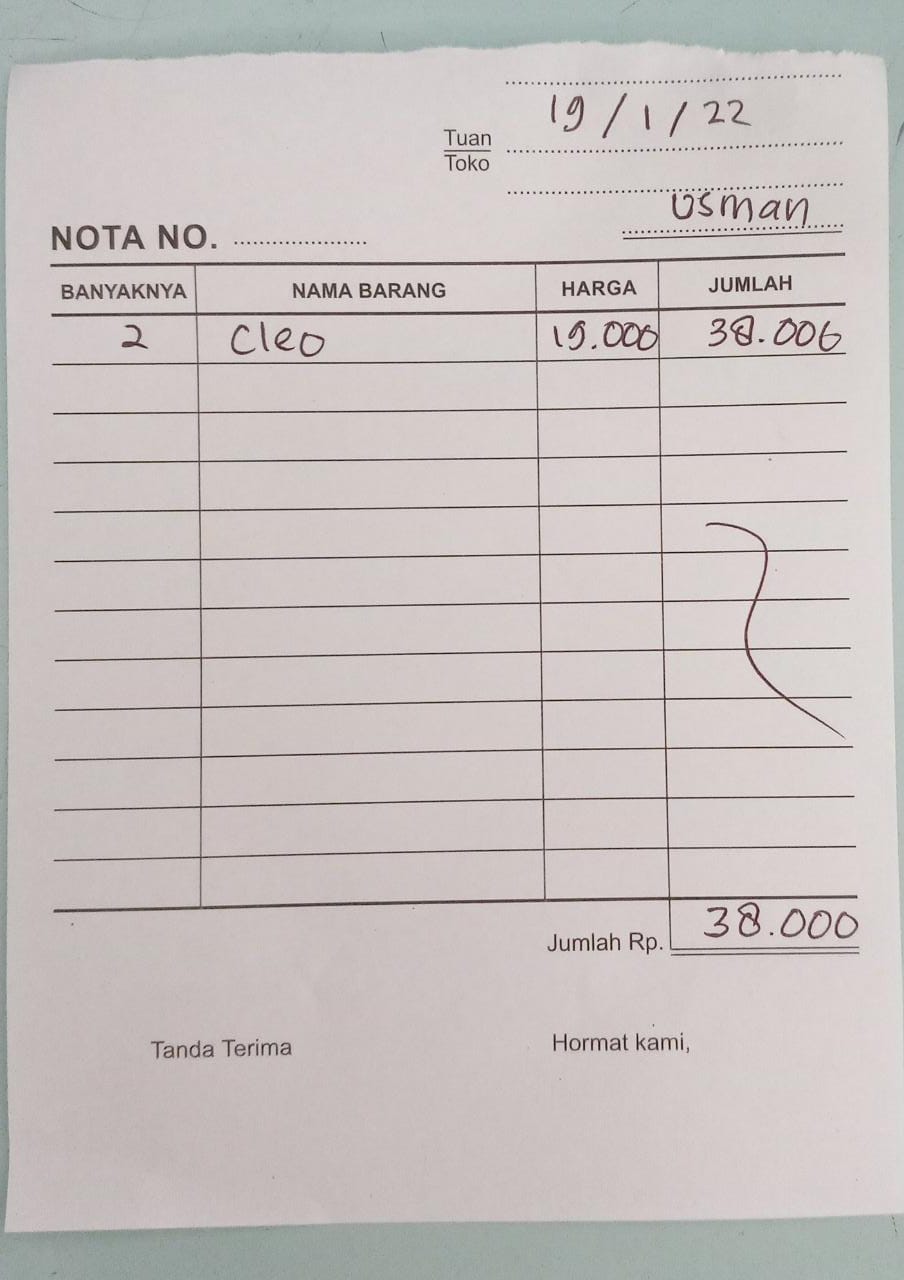 19/1/22
Tuan
Toko
Usman
NOTA NO.
BANYAKNYA NAMA BARANG HARGA JUMLAH
2 Cleo 19.000 38.000
Jumlah Rp. 38.000
Tanda Terima Hormat kami,